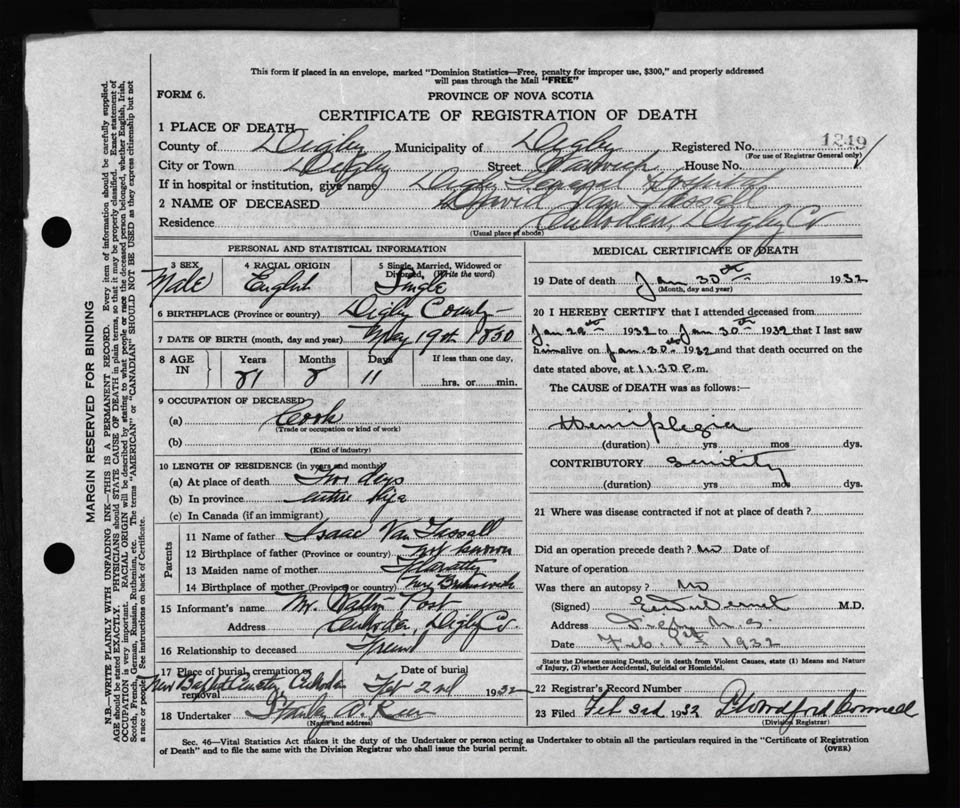 This form if placed in an envelope, marked "Dominion Statistics—Free, penalty for improper use, $300," and properly addressed
will pass through the Mail "FREE"
FORM 6.
PROVINCE OF NOVA SCOTIA
CERTIFICATE OF REGISTRATION OF DEATH
1 PLACE OF DEATH
County of Digby Municipality of Digby Registered No. 1249
(For use of Registrar General only)
City or Town Digby Street Warwick House No.
If in hospital or institution, give name Digby General Hospital
2 NAME OF DECEASED David Van Tassell
Residence Culloden, Digby Co
(Usual place of abode)
PERSONAL AND STATISTICAL INFORMATION
3 SEX 4 RACIAL ORIGIN 5 Single, Married, Widowed or
Divorced, (Write the word)
Male English Single
6 BIRTHPLACE (Province or country) Digby County
7 DATE OF BIRTH (month, day and year) May 19th 1850
8 AGE IN Years Months Days If less than one day,
81 8 11 hrs. or min.
9 OCCUPATION OF DECEASED
(a) Cook
(Trade or occupation or kind of work)
(b)
(Kind of industry)
10 LENGTH OF RESIDENCE (in years and months)
(a) At place of death Two days
(b) In province entire life
(c) In Canada (if an immigrant)
Parents
11 Name of father Isaac Van Tassell
12 Birthplace of father (Province or country) not known
13 Maiden name of mother
14 Birthplace of mother (Province or country) New Brunswick
15 Informant's name Mr. Post
Address Culloden, Digby Co.
16 Relationship to deceased Friend
17 Place of burial, cremation or removal Date of burial
New Baptist Cemetery Culloden Feb 2nd 1932
18 Undertaker Stanley
(Name and address)
MEDICAL CERTIFICATE OF DEATH
19 Date of death Jan 30th 1932
(Month, day and year)
20 I HEREBY CERTIFY that I attended deceased from
Jan 28th 1932 to Jan 30th 1932 that I last saw
him alive on Jan 30th 1932 and that death occurred on the
date stated above, at 11.30 P.m.
The CAUSE of DEATH was as follows:—
Hemiplegia
(duration) yrs mos dys.
CONTRIBUTORY Senility
(duration) yrs mos dys.
21 Where was disease contracted if not at place of death?
Did an operation precede death? no Date of
Nature of operation
Was there an autopsy? no
(Signed) M.D.
Address Digby N.S.
Date Feb. 1st 1932
State the Disease causing Death, or in death from Violent Causes, state (1) Means and Nature
of Injury, (2) whether Accidental, Suicidal or Homicidal.
22 Registrar's Record Number
23 Filed Feb 3rd 1932
(Division Registrar)
Sec. 46—Vital Statistics Act makes it the duty of the Undertaker or person acting as Undertaker to obtain all the particulars required in the "Certificate of Registration
of Death" and to file the same with the Division Registrar who shall issue the burial permit.
(OVER)
MARGIN RESERVED FOR BINDING
N.B.—WRITE PLAINLY WITH UNFADING INK—THIS IS A PERMANENT RECORD. Every item of information should be carefully supplied.
AGE should be stated EXACTLY. PHYSICIANS should STATE CAUSE OF DEATH in plain terms, so that it may be properly classified. Exact statement of
OCCUPATION is very important. RACIAL ORIGIN will be described by stating to what people or race the deceased person belonged, whether English, Irish,
Scotch, French, German, Russian, Ruthenian, etc. The terms "AMERICAN" or "CANADIAN" SHOULD NOT BE USED as they express citizenship but not
a race or people. See instructions on back of Certificate.